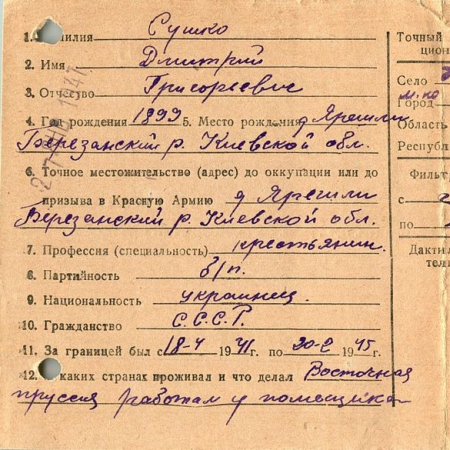 1. Фамилия Сушко
2. Имя Дмитрий
3. Отчество Григорьевич
4. Год рождения 1899 5. Место рождения д Ярешки
Березанский р. Киевской обл.
6. Точное местожительство (адрес) до оккупации или до
призыва в Красную Армию д Ярешки
Березанский р. Киевской обл.
7. Профессия (специальность) крестьянин.
8. Партийность б/п.
9. Национальность украинец
10. Гражданство С.С.С.Р.
11. За границей был с 18-4 1941 г. по 20-2 1945 г.
12. каких странах проживал и что делал Восточная
пруссия работал у помещика
Точный
цион
Село
Город
Область
Республ
Фильт
с
по
Дактил
тел